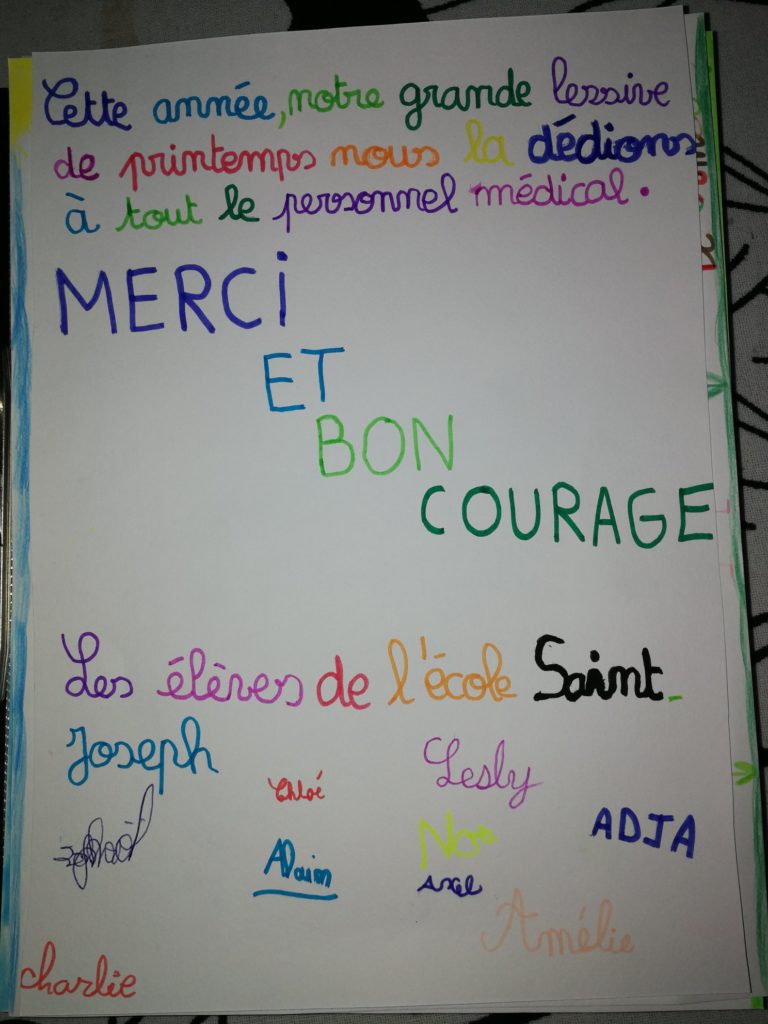 Cette année, notre grande lessive
de printemps nous la dédions
à tout le personnel médical.
MERCi
ET
BON
COURAGE
Les élèves de l'école Saint-
Joseph
Chloé
Lesly
Noo
ADJA
Alaim
Axel
Amélie
charlie